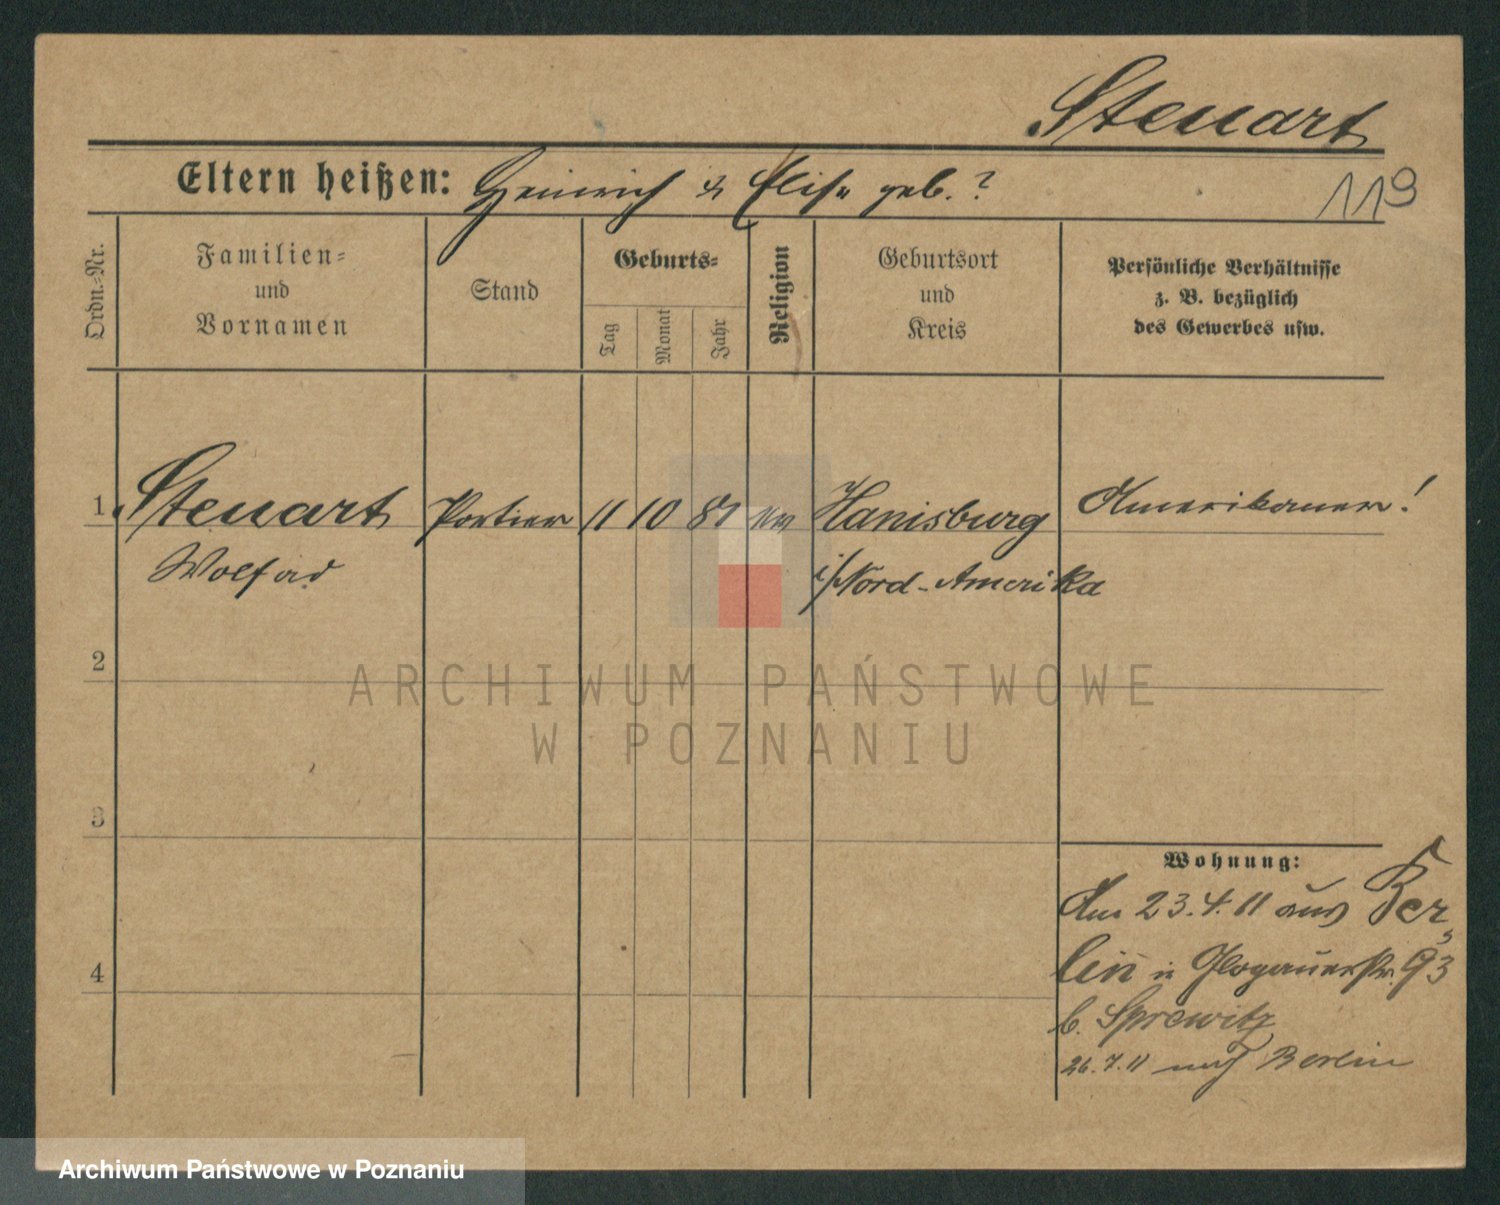 Steuart
Eltern heißen: Heinrich u Elise geb. ?
119
Ordn.-Nr.
Familien-
und
Vornamen
Stand
Geburts-
Tag
Monat
Jahr
Religion
Geburtsort
und
Kreis
Persönliche Verhältnisse
z. B. bezüglich
des Gewerbes usw.
1 Steuart Portier 11 10 81 Hanisburg Amerikaner!
i/Nord-Amerika
2
ARCHIWUM PAŃSTWOWE
W POZNANIU
3
Wohnung:
Am 23.4.11 aus Ber-
4 lin in Glogauerstr. 93
b. Sprewitz
26.7.11 nach Berlin
Archiwum Państwowe w Poznaniu